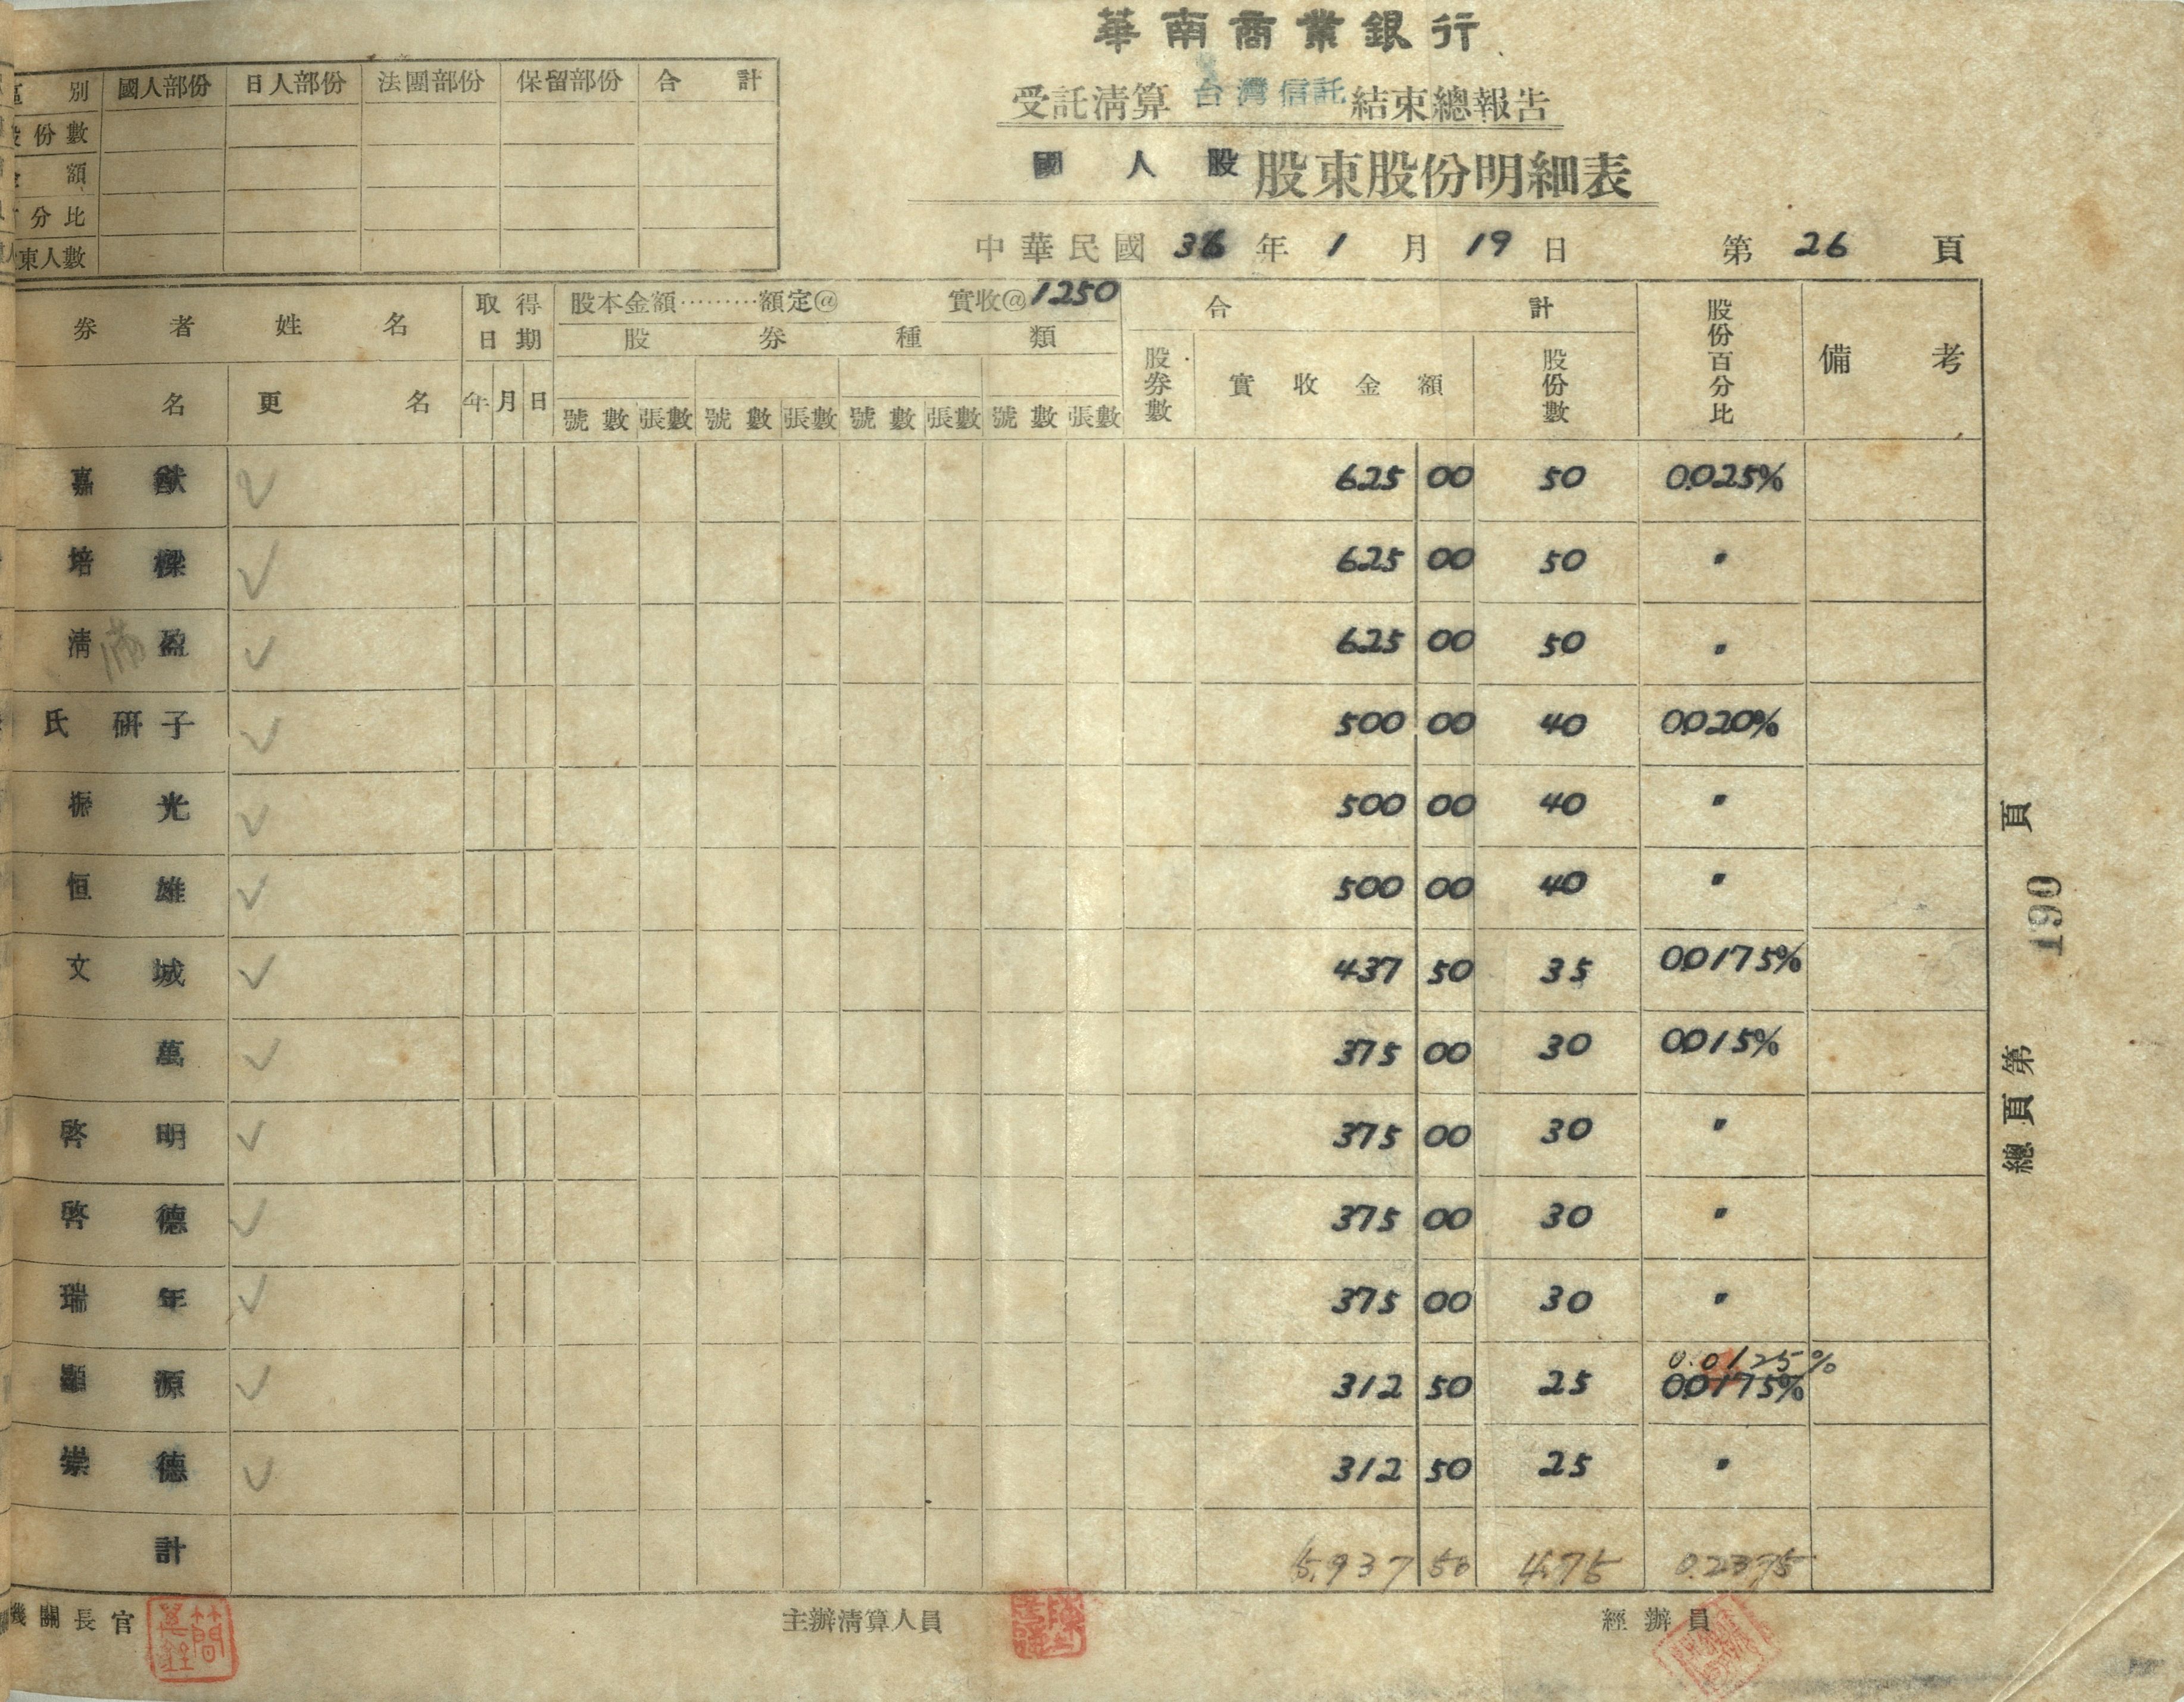 華南商業銀行
受託清算 台灣信託 結束總報告
國人股 股東股份明細表
中華民國 36 年 1 月 19 日 第 26 頁
別 國人部份 日人部份 法團部份 保留部份 合計
份數
額
分比
東人數
券者姓名 取得日期 股本金額………額定@ 實收@1250 合計 股份百分比 備考
股券種類
名 更名 年 月 日 號數 張數 號數 張數 號數 張數 號數 張數 股券數 實收金額 股份數
嘉猷 625 00 50 0.025%
培樑 625 00 50 〃
清盈 625 00 50 〃
氏研子 500 00 40 0.020%
振光 500 00 40 〃
恒雄 500 00 40 〃
文城 437 50 35 0.0175%
萬 375 00 30 0.015%
啓明 375 00 30 〃
啓德 375 00 30 〃
瑞年 375 00 30 〃
0.0125%
顯源 312 50 25 0.0175%
崇德 312 50 25 〃
計 5,937 50 475 0.2375
機關長官 主辦清算人員 經辦員
總頁第 190 頁